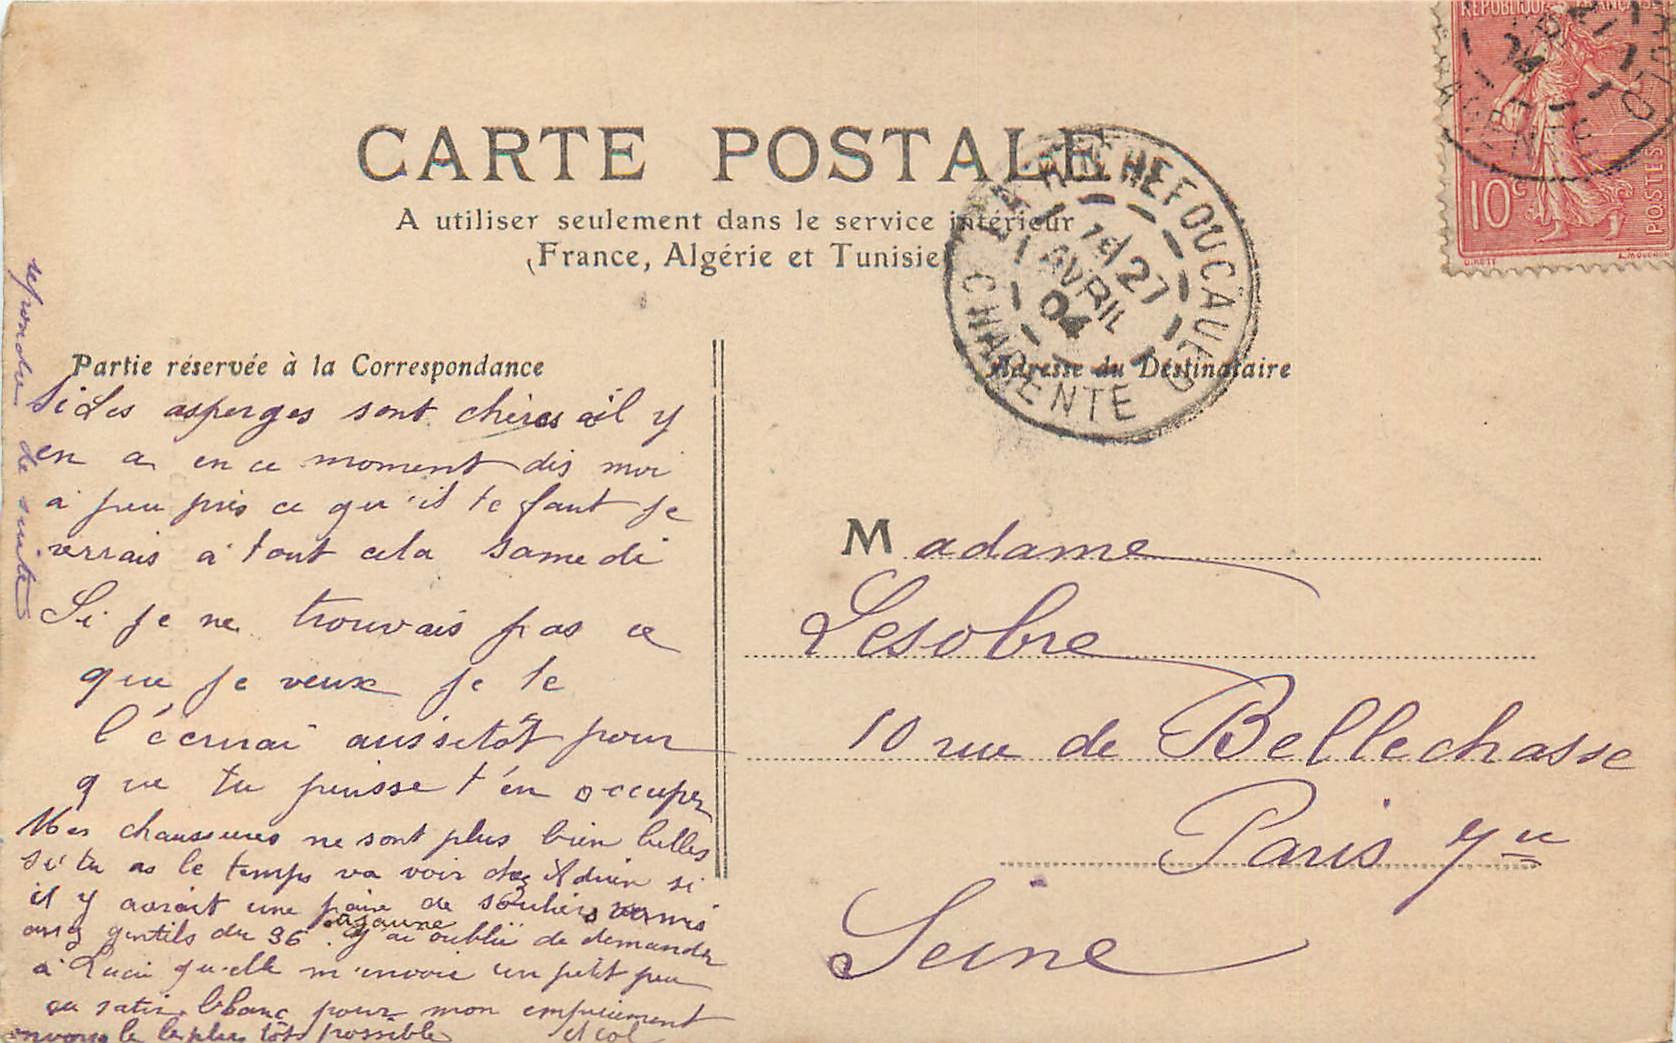 CARTE POSTALE
A utiliser seulement dans le service intérieur
(France, Algérie et Tunisie
RÉPUBLIQUE FRANÇAISE
10c
POSTES
O.ROTY
LA ROCHEFOUCAULD
27
AVRIL
04
CHARENTE
Partie réservée à la Correspondance
Adresse du Destinataire
repondre de suite
Si Les asperges sont chères s'il y
en a en ce moment dis moi
à peu près ce qu'il te faut je
verrais à tout cela samedi
Si je ne trouvais pas ce
que je veux je te
l'écrirai aussitôt pour
que tu puisse t'en occuper
Mes chaussures ne sont plus bien belles
si tu as le temps va voir chez Adrien si
il y aurait une paire de souliers vernis
ou jaune
assez gentils du 36. J'ai oublié de demander
à Lucie qu'elle m'envoie un petit peu
de satin blanc pour mon empiècement
et col
envoye le le plus tôt possible
Madame
Lesobre
10 rue de Bellechasse
Paris 7me
Seine